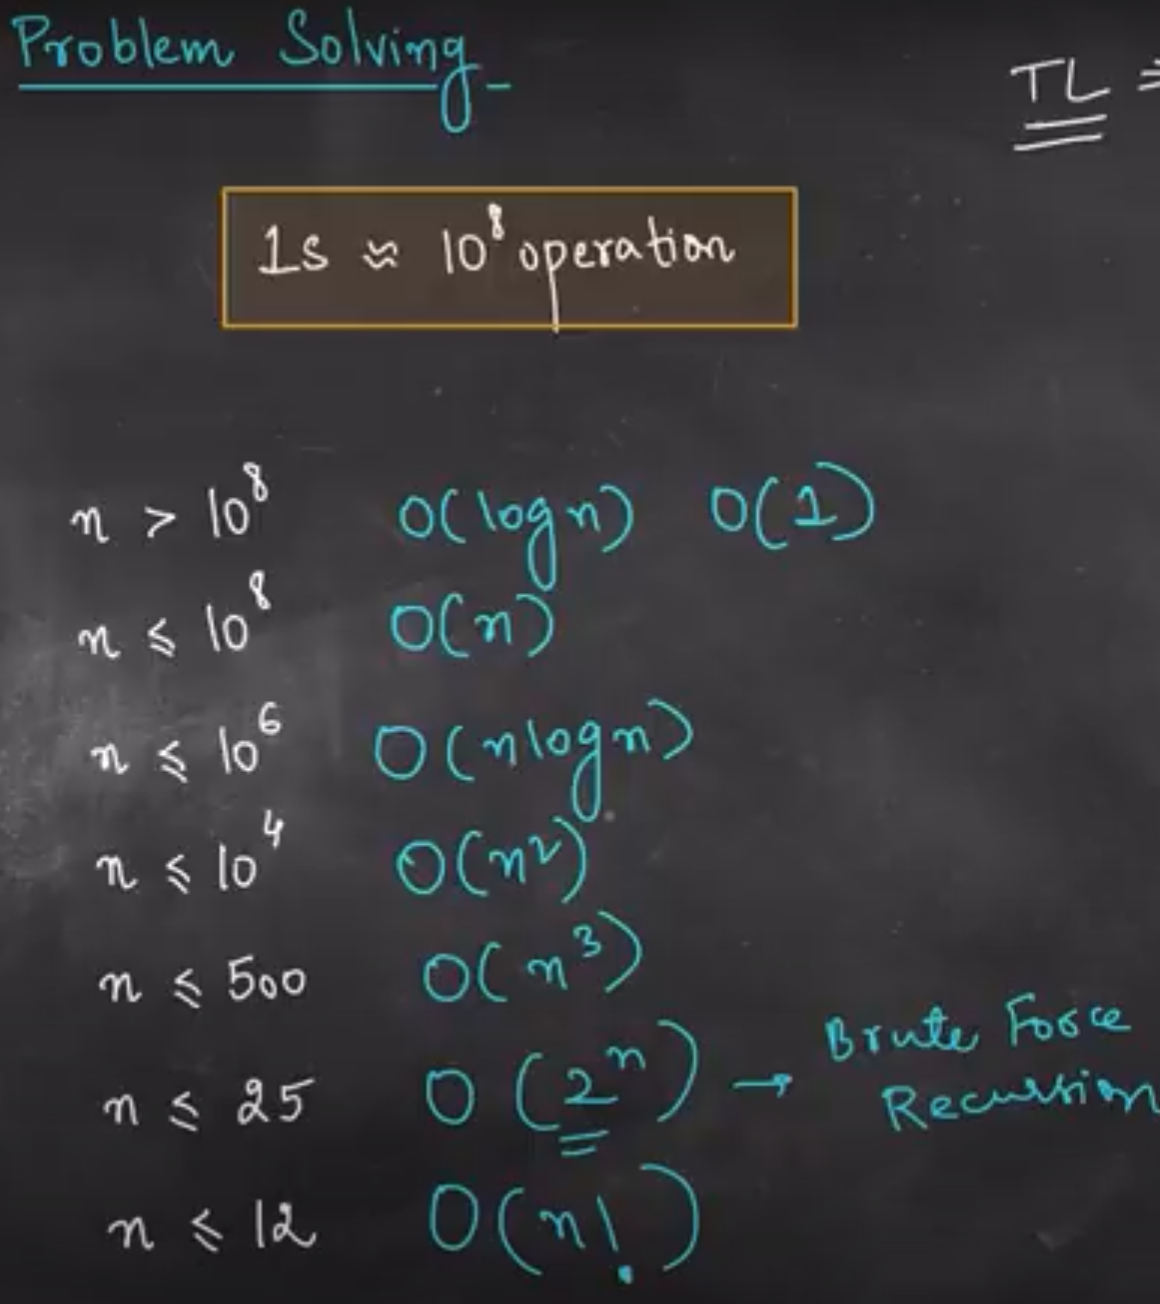 Problem Solving
TL ⇒
1s ≈ 10⁸ operation
n > 10⁸ O(logn) O(1)
n ≤ 10⁸ O(n)
n ≤ 10⁶ O(nlogn)
n ≤ 10⁴ O(n²)
n ≤ 500 O(n³)
n ≤ 25 O(2ⁿ) → Brute Force
Recursion
n ≤ 12 O(n!)